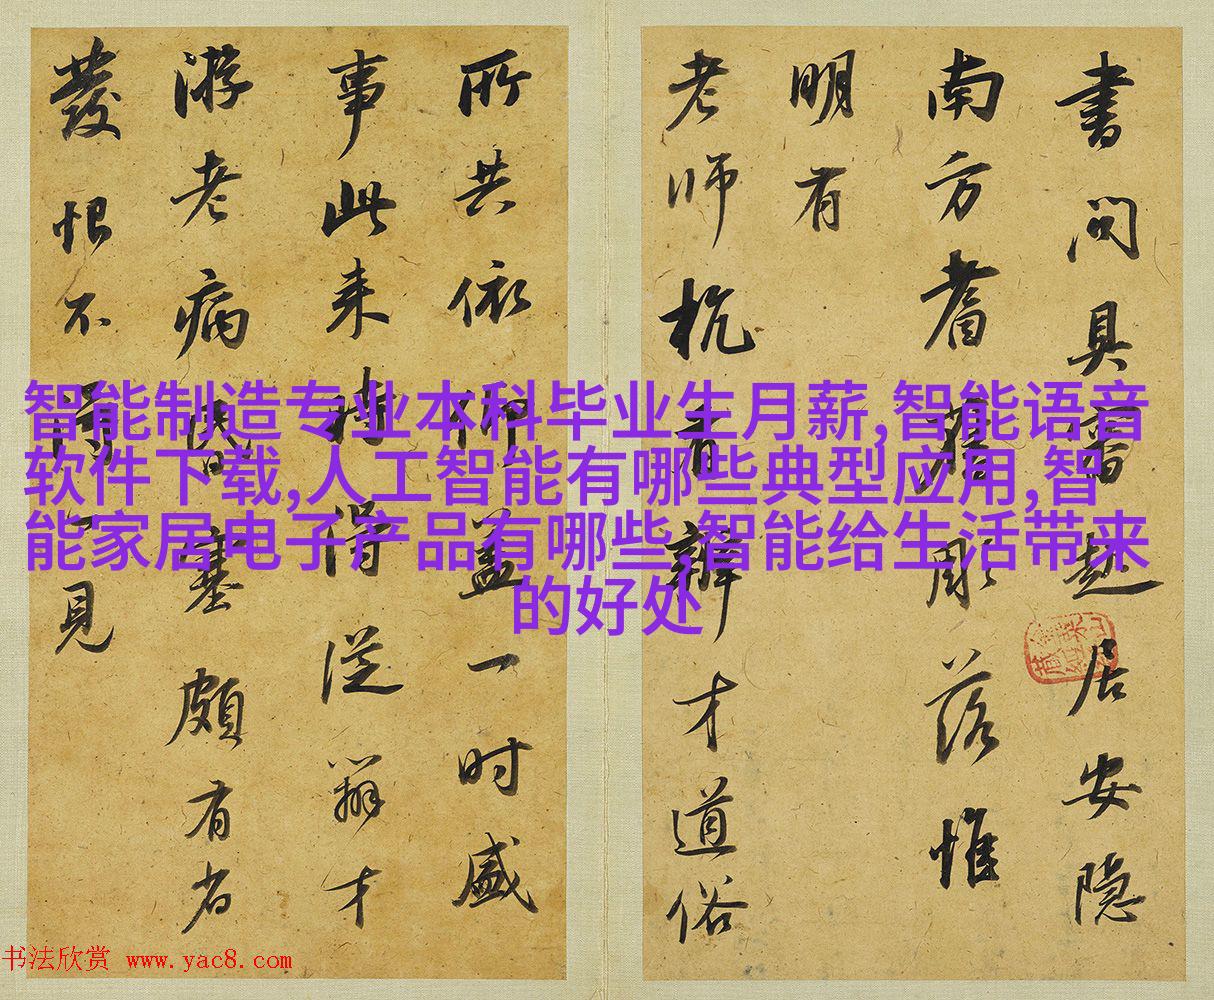 書問具審起居安隱
南方耆舊彫落惟
明有
老師杭有辯才道俗
所共依仰蓋一時盛
事此来時得從辯才
游老病昏塞頗有省
發恨不得一見
智能制造专业本科毕业生月薪,智能语音
软件下载,人工智能有哪些典型应用,智
能家居电子产品有哪些,智能给生活带来
的好处
书法欣赏 www.yac8.com